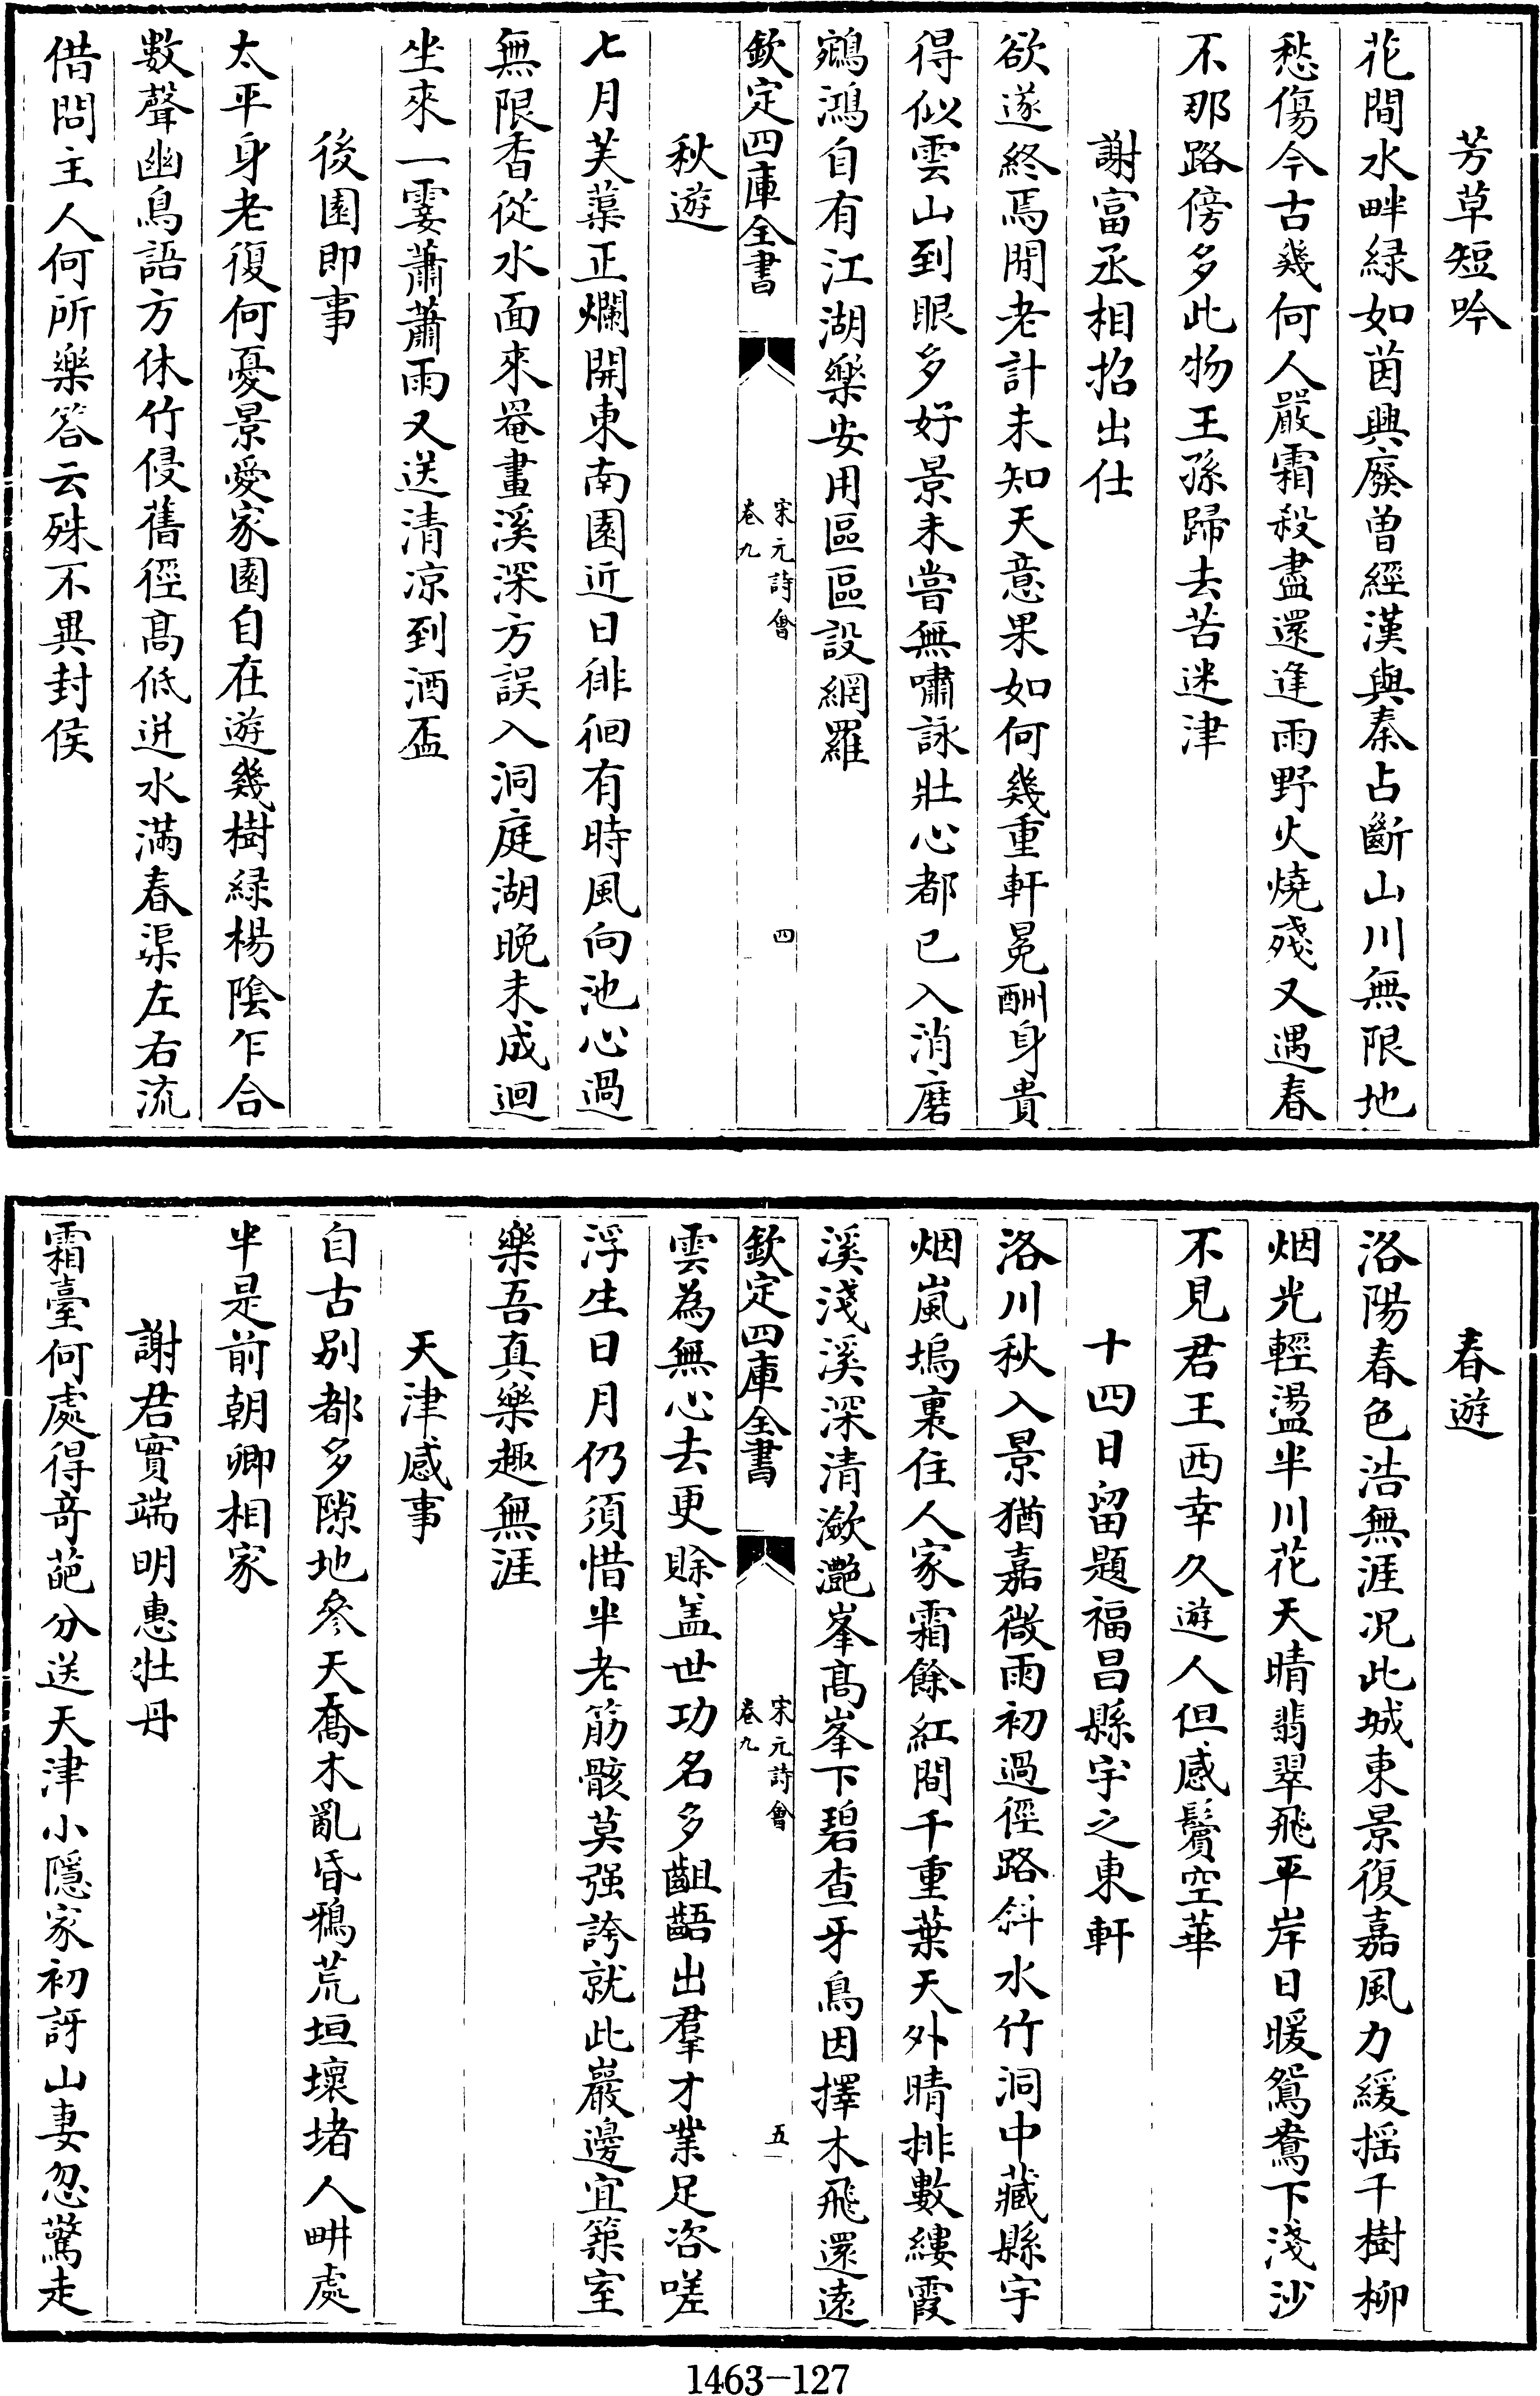 芳草短吟
花間水畔緑如茵興廢曾經漢與秦占斷山川無限地
愁傷今古幾何人嚴霜殺盡還逢雨野火燒殘又遇春
不那路傍多此物王孫歸去苦迷津
謝富丞相招出仕
欲遂終焉閒老計未知天意果如何幾重軒冕酬身貴
得似雲山到眼多好景未嘗無嘯詠壯心都已入消磨
鵷鴻自有江湖樂安用區區設網羅
欽定四庫全書
宋元詩會
卷九
四
秋遊
七月芙蕖正爛開東南園近日徘徊有時風向池心過
無限香從水面來罨畫溪深方誤入洞庭湖晚未成迴
坐來一霎蕭蕭雨又送清凉到酒盃
後園即事
太平身老復何憂景愛家園自在遊幾樹緑楊陰乍合
數聲幽鳥語方休竹侵舊徑髙低迸水滿春渠左右流
借問主人何所樂答云殊不異封侯
春遊
洛陽春色浩無涯况此城東景復嘉風力緩揺千樹柳
烟光輕盪半川花天晴翡翠飛平岸日暖鴛鴦下淺沙
不見君王西幸久遊人但感鬢空華
十四日留題福昌縣宇之東軒
洛川秋入景猶嘉微雨初過徑路斜水竹洞中藏縣宇
烟嵐塢裏住人家霜餘紅間千重葉天外晴排數縷霞
溪淺溪深清瀲灔峯髙峯下碧查牙鳥因擇木飛還逺
欽定四庫全書
宋元詩會
卷九
五
雲為無心去更賖盖世功名多齟齬出羣才業足咨嗟
浮生日月仍須惜半老筋骸莫强誇就此巖邊宜築室
樂吾真樂趣無涯
天津感事
自古别都多隙地參天喬木亂昏鴉荒垣壞堵人畊處
半是前朝卿相家
謝君實端明惠牡丹
霜臺何處得竒葩分送天津小隱家初訝山妻忽驚走
1463-127